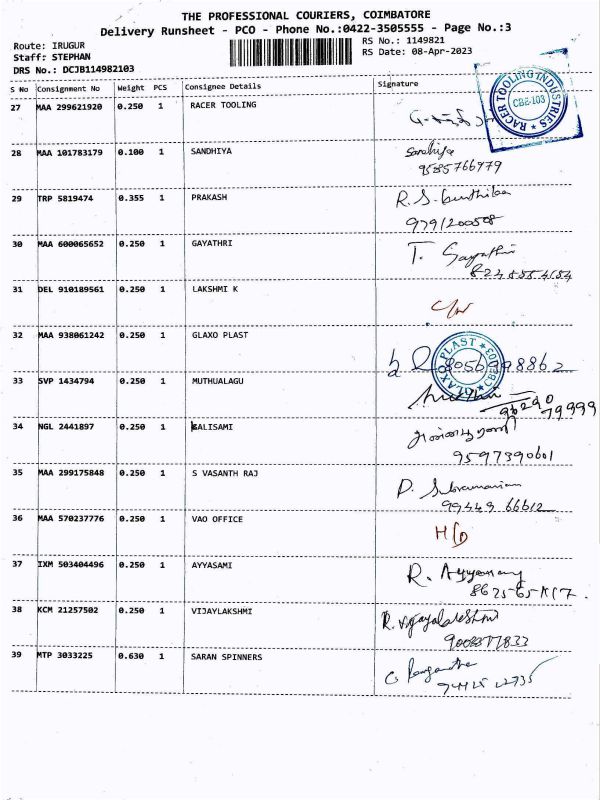 THE PROFESSIONAL COURIERS, COIMBATORE
Delivery Runsheet - PCO - Phone No.:0422-3505555 - Page No.:3
Route: IRUGUR
RS No.: 1149821
Staff: STEPHAN
RS Date: 08-Apr-2023
DRS No.: DCJB114982103
S No Consignment No Weight PCS Consignee Details Signature
27 MAA 299621920 0.250 1 RACER TOOLING
RACER TOOLING INDUSTRIES
CBE-103
28 MAA 101783179 0.100 1 SANDHIYA Sandhiya
9585766979
29 TRP 5819474 0.355 1 PRAKASH R.S.
9791200508
30 MAA 600065652 0.250 1 GAYATHRI T. Gayathri
31 DEL 910189561 0.250 1 LAKSHMI K
32 MAA 938061242 0.250 1 GLAXO PLAST
GLAXO PLAST
33 SVP 1434794 0.250 1 MUTHUALAGU
96290
79999
34 NGL 2441897 0.250 1 BALISAMI
9597390601
35 MAA 299175848 0.250 1 S VASANTH RAJ P. Subramaniam
99449 66612
36 MAA 570237776 0.250 1 VAO OFFICE
37 IXM 503404496 0.250 1 AYYASAMI R. Ayyasamy
38 KCM 21257502 0.250 1 VIJAYLAKSHMI R. Vijayalakshmi
39 MTP 3033225 0.630 1 SARAN SPINNERS